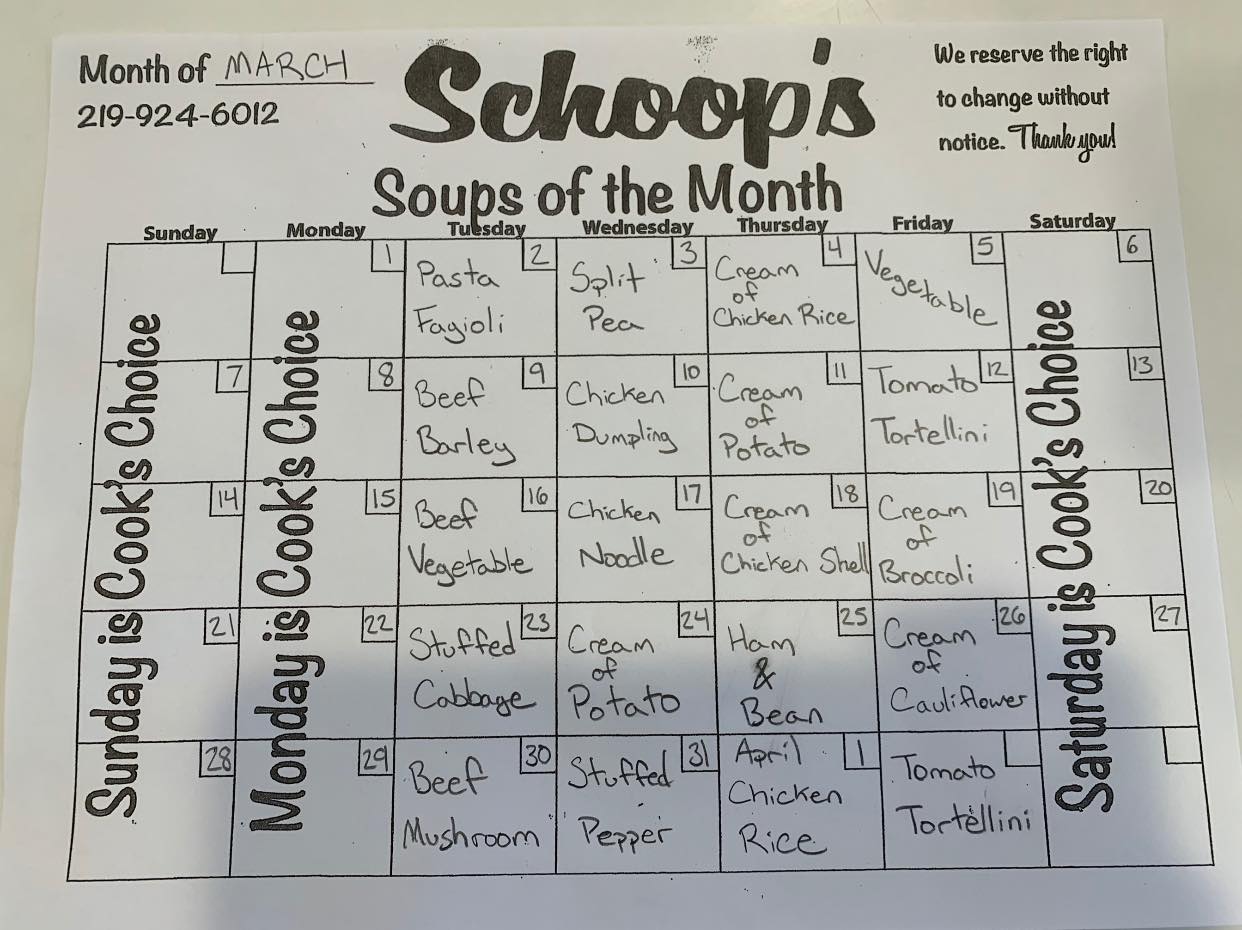 Month of MARCH
219-924-6012
Schoop's
Soups of the Month
We reserve the right
to change without
notice. Thank you!
Sunday Monday Tuesday Wednesday Thursday Friday Saturday
Sunday is Cook's Choice
Monday is Cook's Choice
Saturday is Cook's Choice
1
2
Pasta
Fagioli
3
Split
Pea
4
Cream
of
Chicken Rice
5
Vegetable
6
7
8
9
Beef
Barley
10
Chicken
Dumpling
11
Cream
of
Potato
12
Tomato
Tortellini
13
14
15
16
Beef
Vegetable
17
Chicken
Noodle
18
Cream
of
Chicken Shell
19
Cream
of
Broccoli
20
21
22
23
Stuffed
Cabbage
24
Cream
of
Potato
25
Ham
&
Bean
26
Cream
of
Cauliflower
27
28
29
30
Beef
Mushroom
31
Stuffed
Pepper
April 1
Chicken
Rice
Tomato
Tortellini